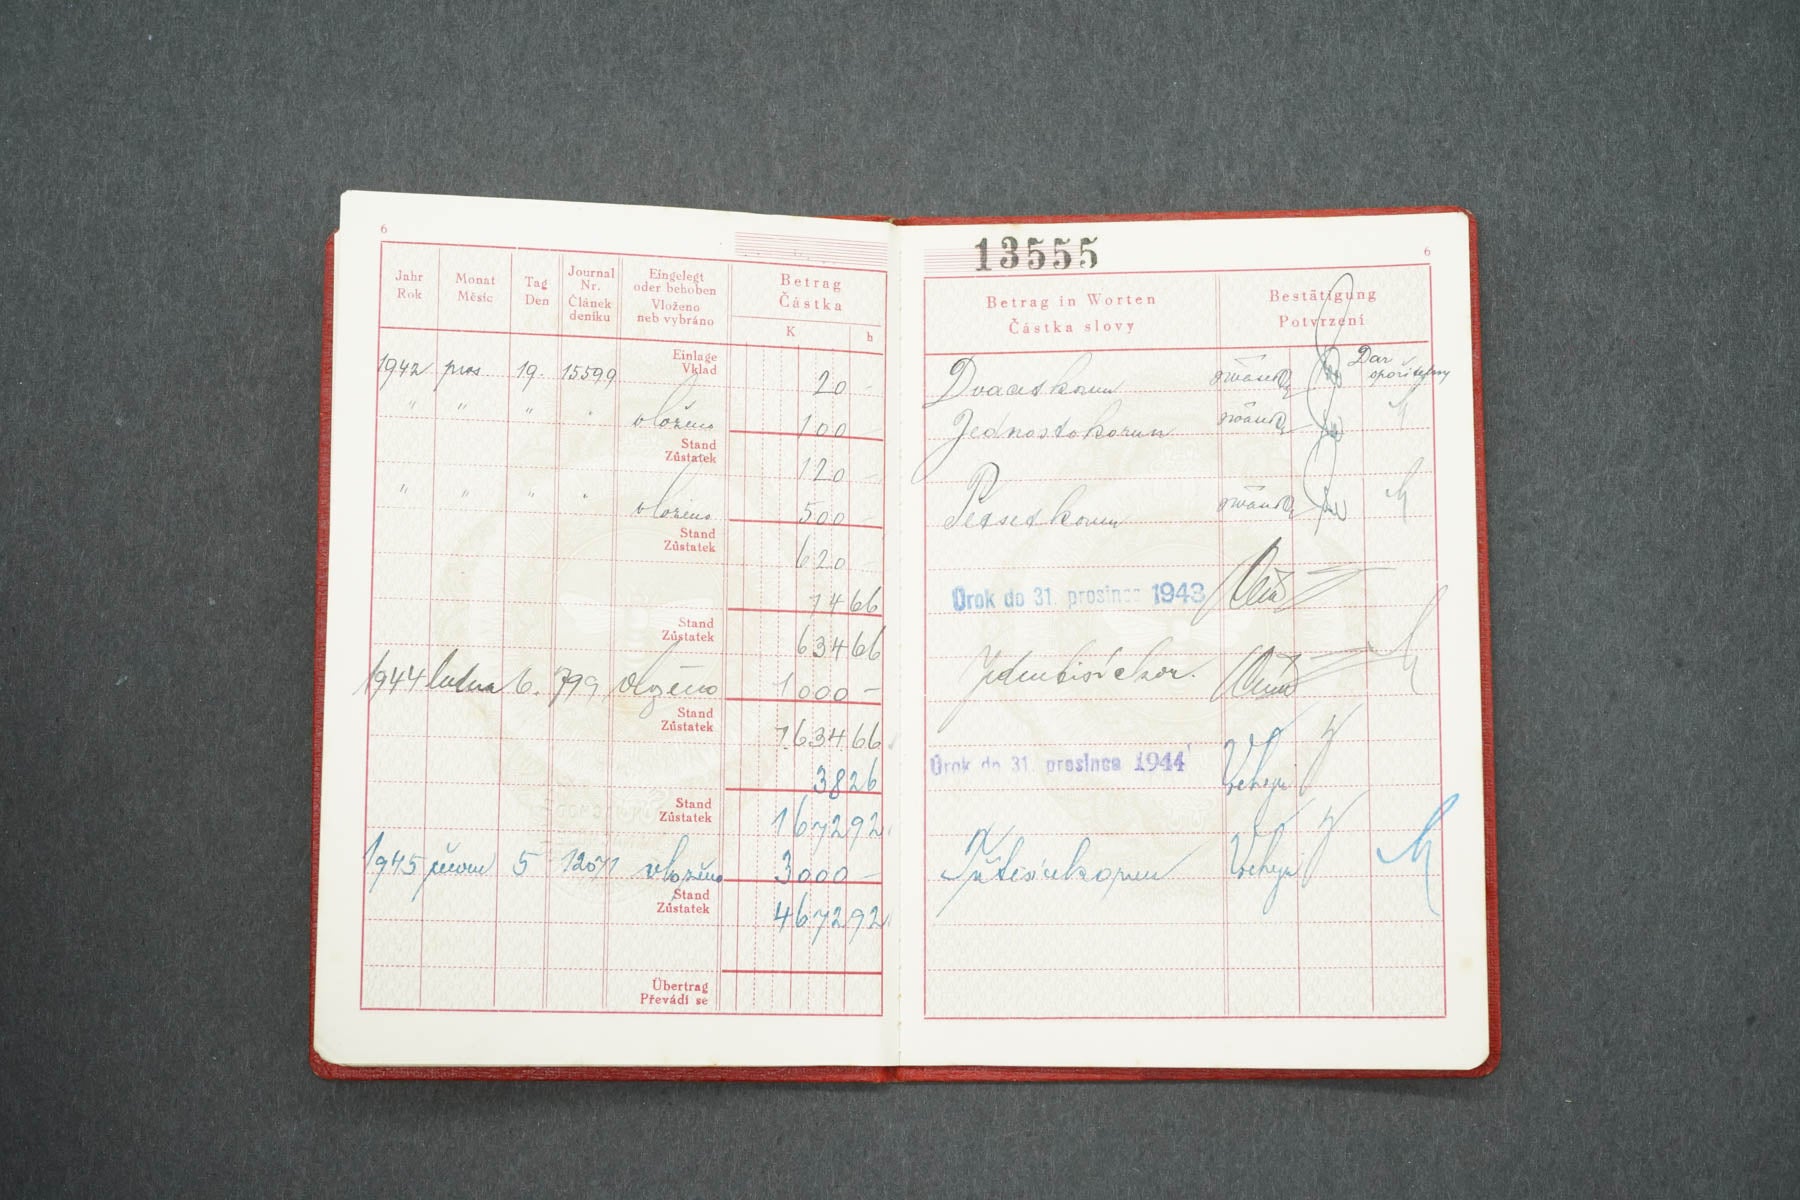 6
Jahr
Rok
Monat
Měsíc
Tag
Den
Journal
Nr.
Článek
deníku
Eingelegt
oder behoben
Vloženo
neb vybráno
Betrag
Částka
K h
Einlage
Vklad
1942 pros 19. 15599 20 -
" " " " vloženo 100 -
Stand
Zůstatek
120 -
" " " " vloženo 500 -
Stand
Zůstatek
620 -
14 66
Stand
Zůstatek
634 66
1944 ledna 6. 799 vloženo 1000 -
Stand
Zůstatek
1634 66
38 26
Stand
Zůstatek
1672 92
1945 5 12071 vloženo 3000 -
Stand
Zůstatek
4672 92
Übertrag
Převádí se
13555
6
Betrag in Worten
Částka slovy
Bestätigung
Potvrzení
Dvacetkorun Dar
spořitelny
Jednostokorun
Pětsetkorun
Úrok do 31. prosince 1943
Jedentisíckor.
Úrok do 31. prosince 1944
Třitisíckorun